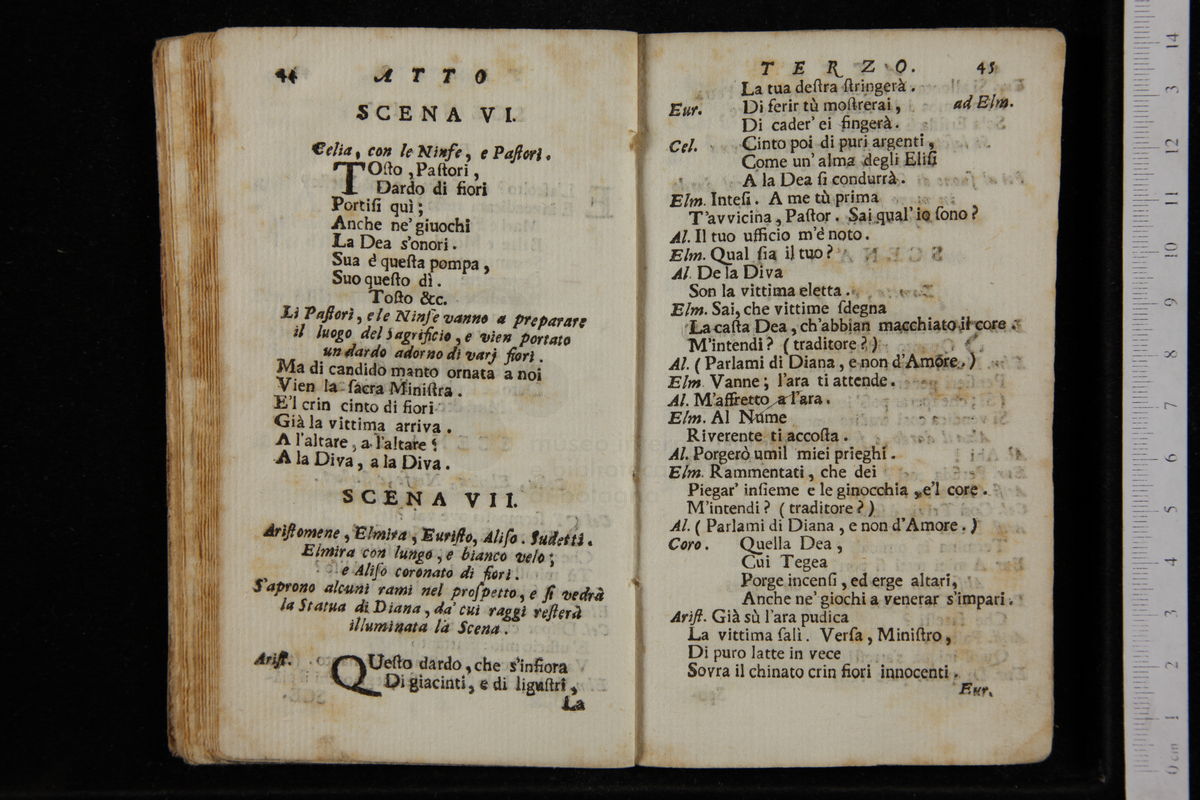 44 ATTO
SCENA VI.
Celia, con le Ninfe, e Pastori.
TOsto, Pastori,
Dardo di fiori
Portisi quì;
Anche ne' giuochi
La Dea s'onori.
Sua è questa pompa,
Suo questo dì.
Tosto &c.
Li Pastori, e le Ninfe vanno a preparare
il luogo del Sagrificio, e vien portato
un dardo adorno di varj fiori.
Ma di candido manto ornata a noi
Vien la sacra Ministra.
E'l crin cinto di fiori
Già la vittima arriva.
A l'altare, a l'altare:
A la Diva, a la Diva.
SCENA VII.
Aristomene, Elmira, Euristo, Aliso. Sudetti.
Elmira con lungo, e bianco velo;
e Aliso coronato di fiori.
S'aprono alcuni rami nel prospetto, e si vedrà
la Statua di Diana, da' cui raggi resterà
illuminata la Scena.
Arist. QUesto dardo, che s'infiora
Di giacinti, e di ligustri,
La
TERZO. 45
La tua destra stringerà.
Eur. Di ferir tù mostrerai, ad Elm.
Di cader' ei fingerà.
Cel. Cinto poi di puri argenti,
Come un' alma degli Elisi
A la Dea si condurrà.
Elm. Intesi. A me tù prima
T'avvicina, Pastor. Sai qual' io sono?
Al. Il tuo ufficio m'è noto.
Elm. Qual sia il tuo?
Al. De la Diva
Son la vittima eletta.
Elm. Sai, che vittime sdegna
La casta Dea, ch'abbian macchiato il core.
M'intendi? (traditore?)
Al. (Parlami di Diana, e non d'Amore.)
Elm. Vanne; l'ara ti attende.
Al. M'affretto a l'ara.
Elm. Al Nume
Riverente ti accosta.
Al. Porgerò umil miei prieghi.
Elm. Rammentati, che dei
Piegar' insieme e le ginocchia, e'l core.
M'intendi? (traditore?)
Al. (Parlami di Diana, e non d'Amore.)
Coro. Quella Dea,
Cui Tegea
Porge incensi, ed erge altari,
Anche ne' giochi a venerar s'impari.
Arist. Già sù l'ara pudica
La vittima salì. Versa, Ministro,
Di puro latte in vece
Sovra il chinato crin fiori innocenti.
Eur.